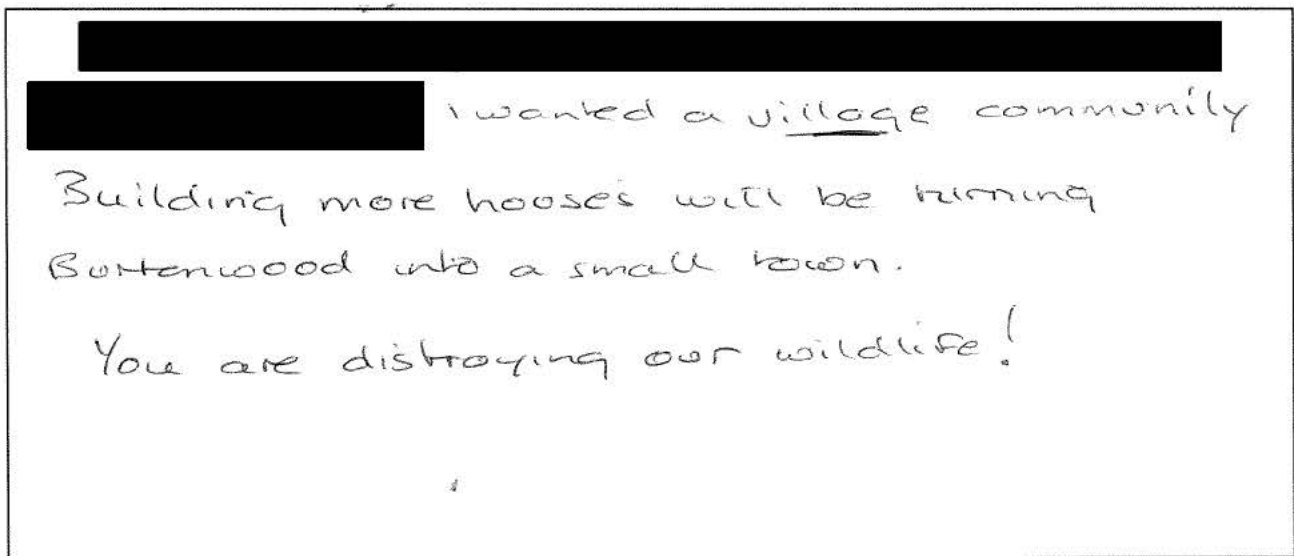 I wanted a village community
Building more houses will be turning
Burtonwood into a small town.
You are distroying our wildlife!